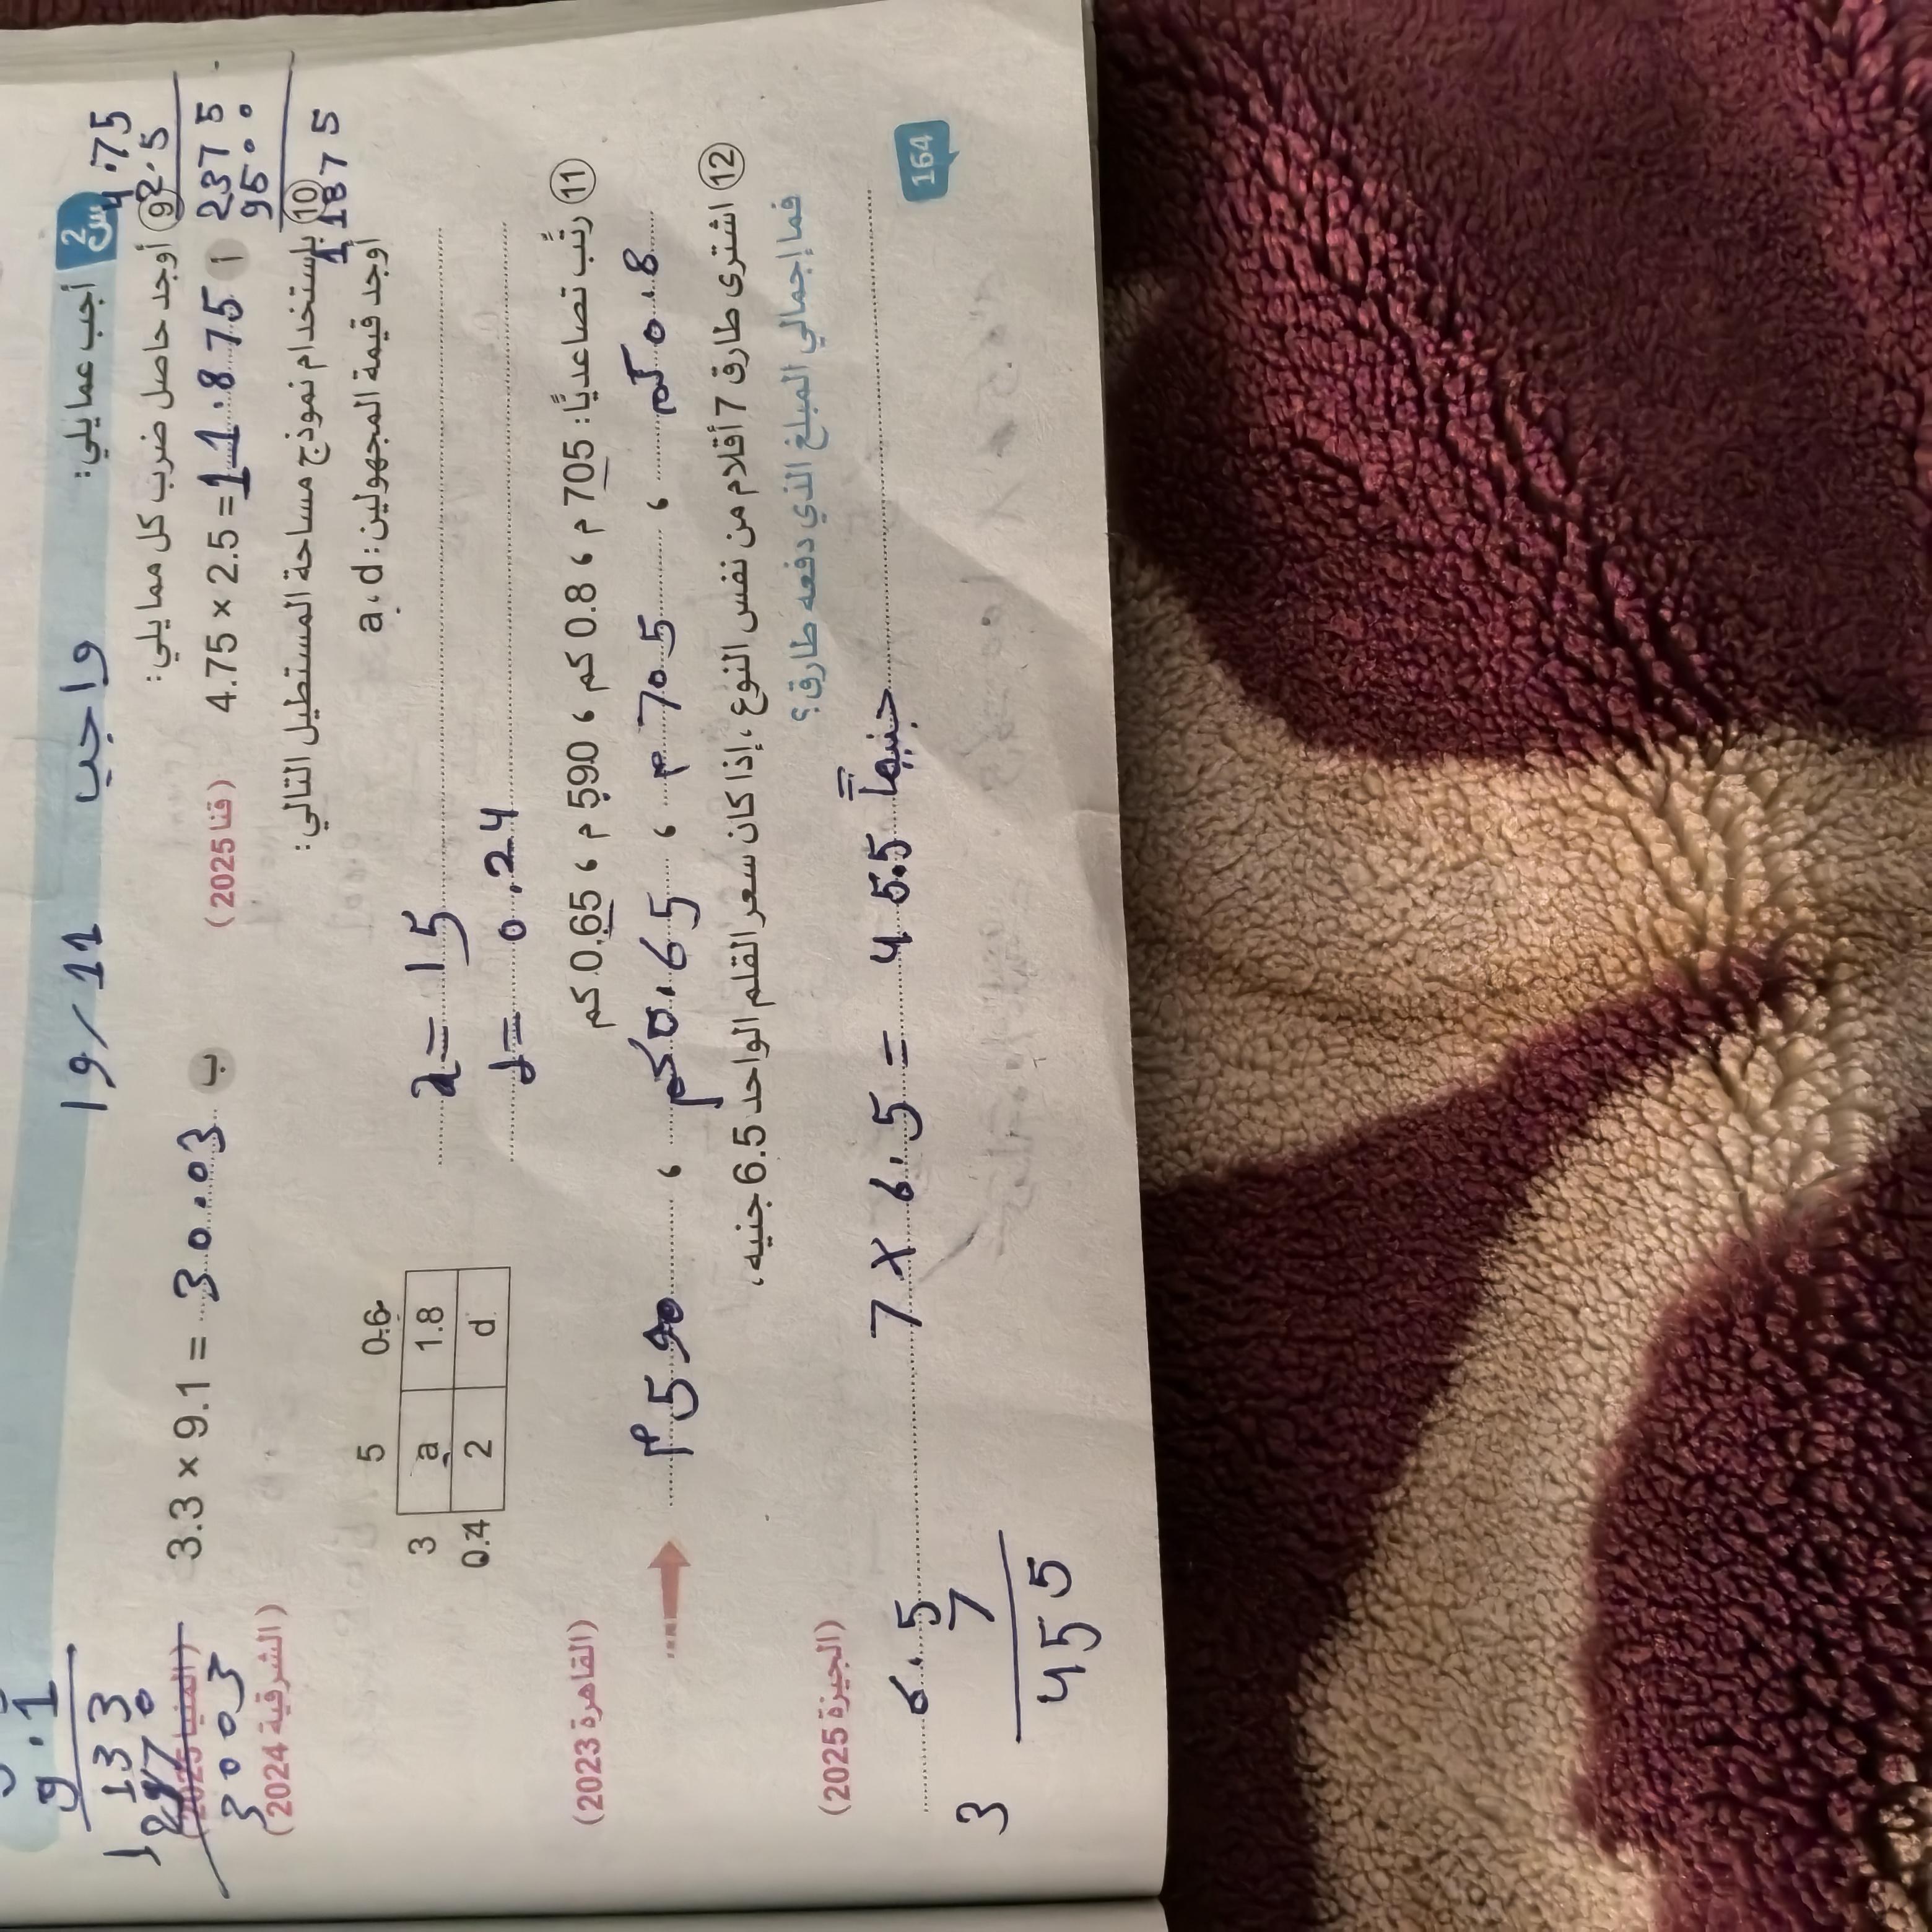 19/11 واجب
س 2 أجب عما يلي:
4.75
2.5
2375
9500
11875
9 أوجد حاصل ضرب كل مما يلي:
أ 4.75 × 2.5 = 11.875 (قنا 2025)
ب 3.3 × 9.1 = 30.03 (المنيا 2025)
9.1
1
133
2970
3003
10 باستخدام نموذج مساحة المستطيل التالي: (الشرقية 2024)
أوجد قيمة المجهولين: a، d
5 0.6
3 a 1.8
0.4 2 d
a = 15
d = 0.24
11 رتِّب تصاعديًّا: 705 م ، 0.8 كم ، 590 م ، 0.65 كم (القاهرة 2023)
م 590 ، كم 0.65 ، م 705 ، كم 0.8
12 اشترى طارق 7 أقلام من نفس النوع، إذا كان سعر القلم الواحد 6.5 جنيه،
فما إجمالي المبلغ الذي دفعه طارق؟ (الجيزة 2025)
7 × 6.5 = 45.5 جنيهاً
3
6.5
7
455
164